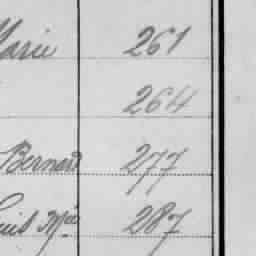 Marie 261
264
Bernard 277
Louis Mie 287